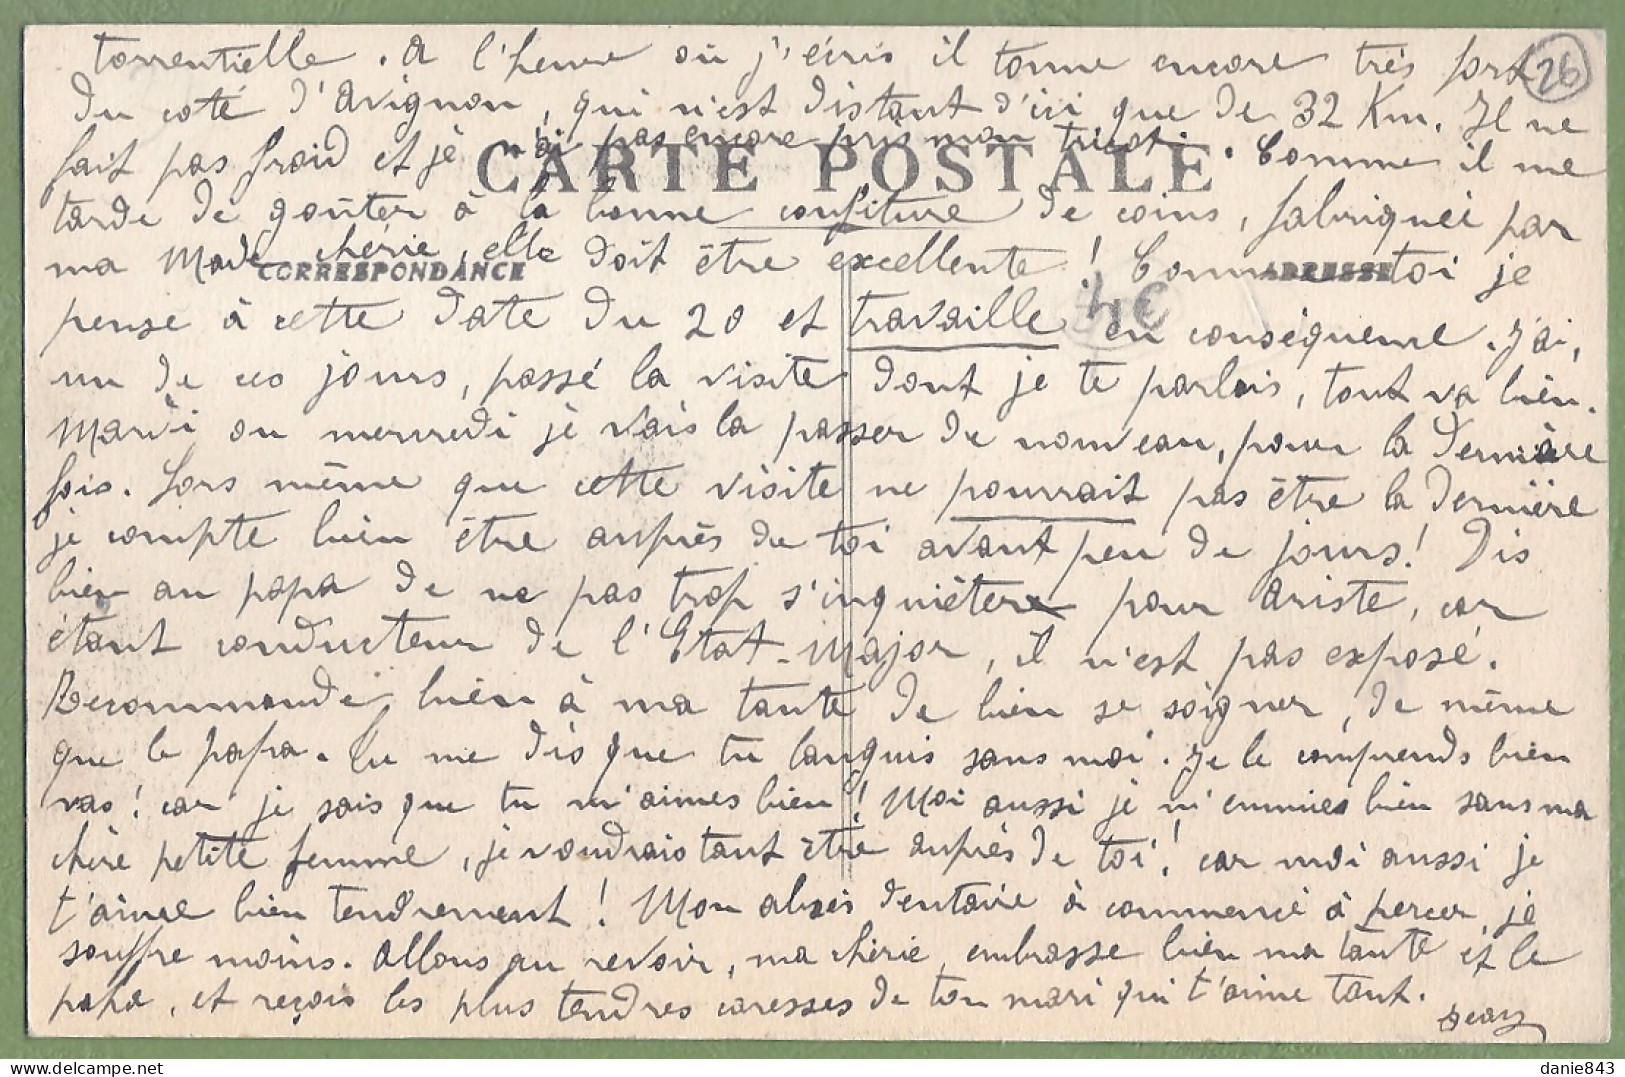 torrentielle. A l'heure où j'écris il tonne encore très fort
26
du coté d'Avignon, qui n'est distant d'ici que de 32 Km. Il ne
fait pas froid et je n'ai pas encore pris mon tricot. Comme il me
CARTE POSTALE
tarde de goûter à la bonne confiture de coins, fabriquée par
ma Made chérie, elle doit être excellente! Comme toi je
CORRESPONDANCE
ADRESSE
pense à cette date du 20 et travaille en conséquence. J'ai,
4€
un de ces jours, passé la visite dont je te parlais, tout va bien.
Mardi ou mercredi je vais la passer de nouveau, pour la dernière
fois. Lors même que cette visite ne pourrait pas être la dernière
je compte bien être auprès de toi avant peu de jours! Dis
bien au papa de ne pas trop s'inquiéter pour Ariste, car
étant conducteur de l'Etat-Major, il n'est pas exposé.
Recommande bien à ma tante de bien se soigner, de même
que le papa. Tu me dis que tu languis sans moi. Je le comprends bien
vas! car je sais que tu m'aimes bien! Moi aussi je m'ennuies bien sans ma
chère petite femme, je voudrais tant être auprès de toi! car moi aussi je
t'aime bien tendrement! Mon abcès dentaire à commencé à percer, je
souffre moins. Allons au revoir, ma chérie, embrasse bien ma tante et le
papa, et reçois les plus tendres caresses de ton mari qui t'aime tant.
Jean
danie843